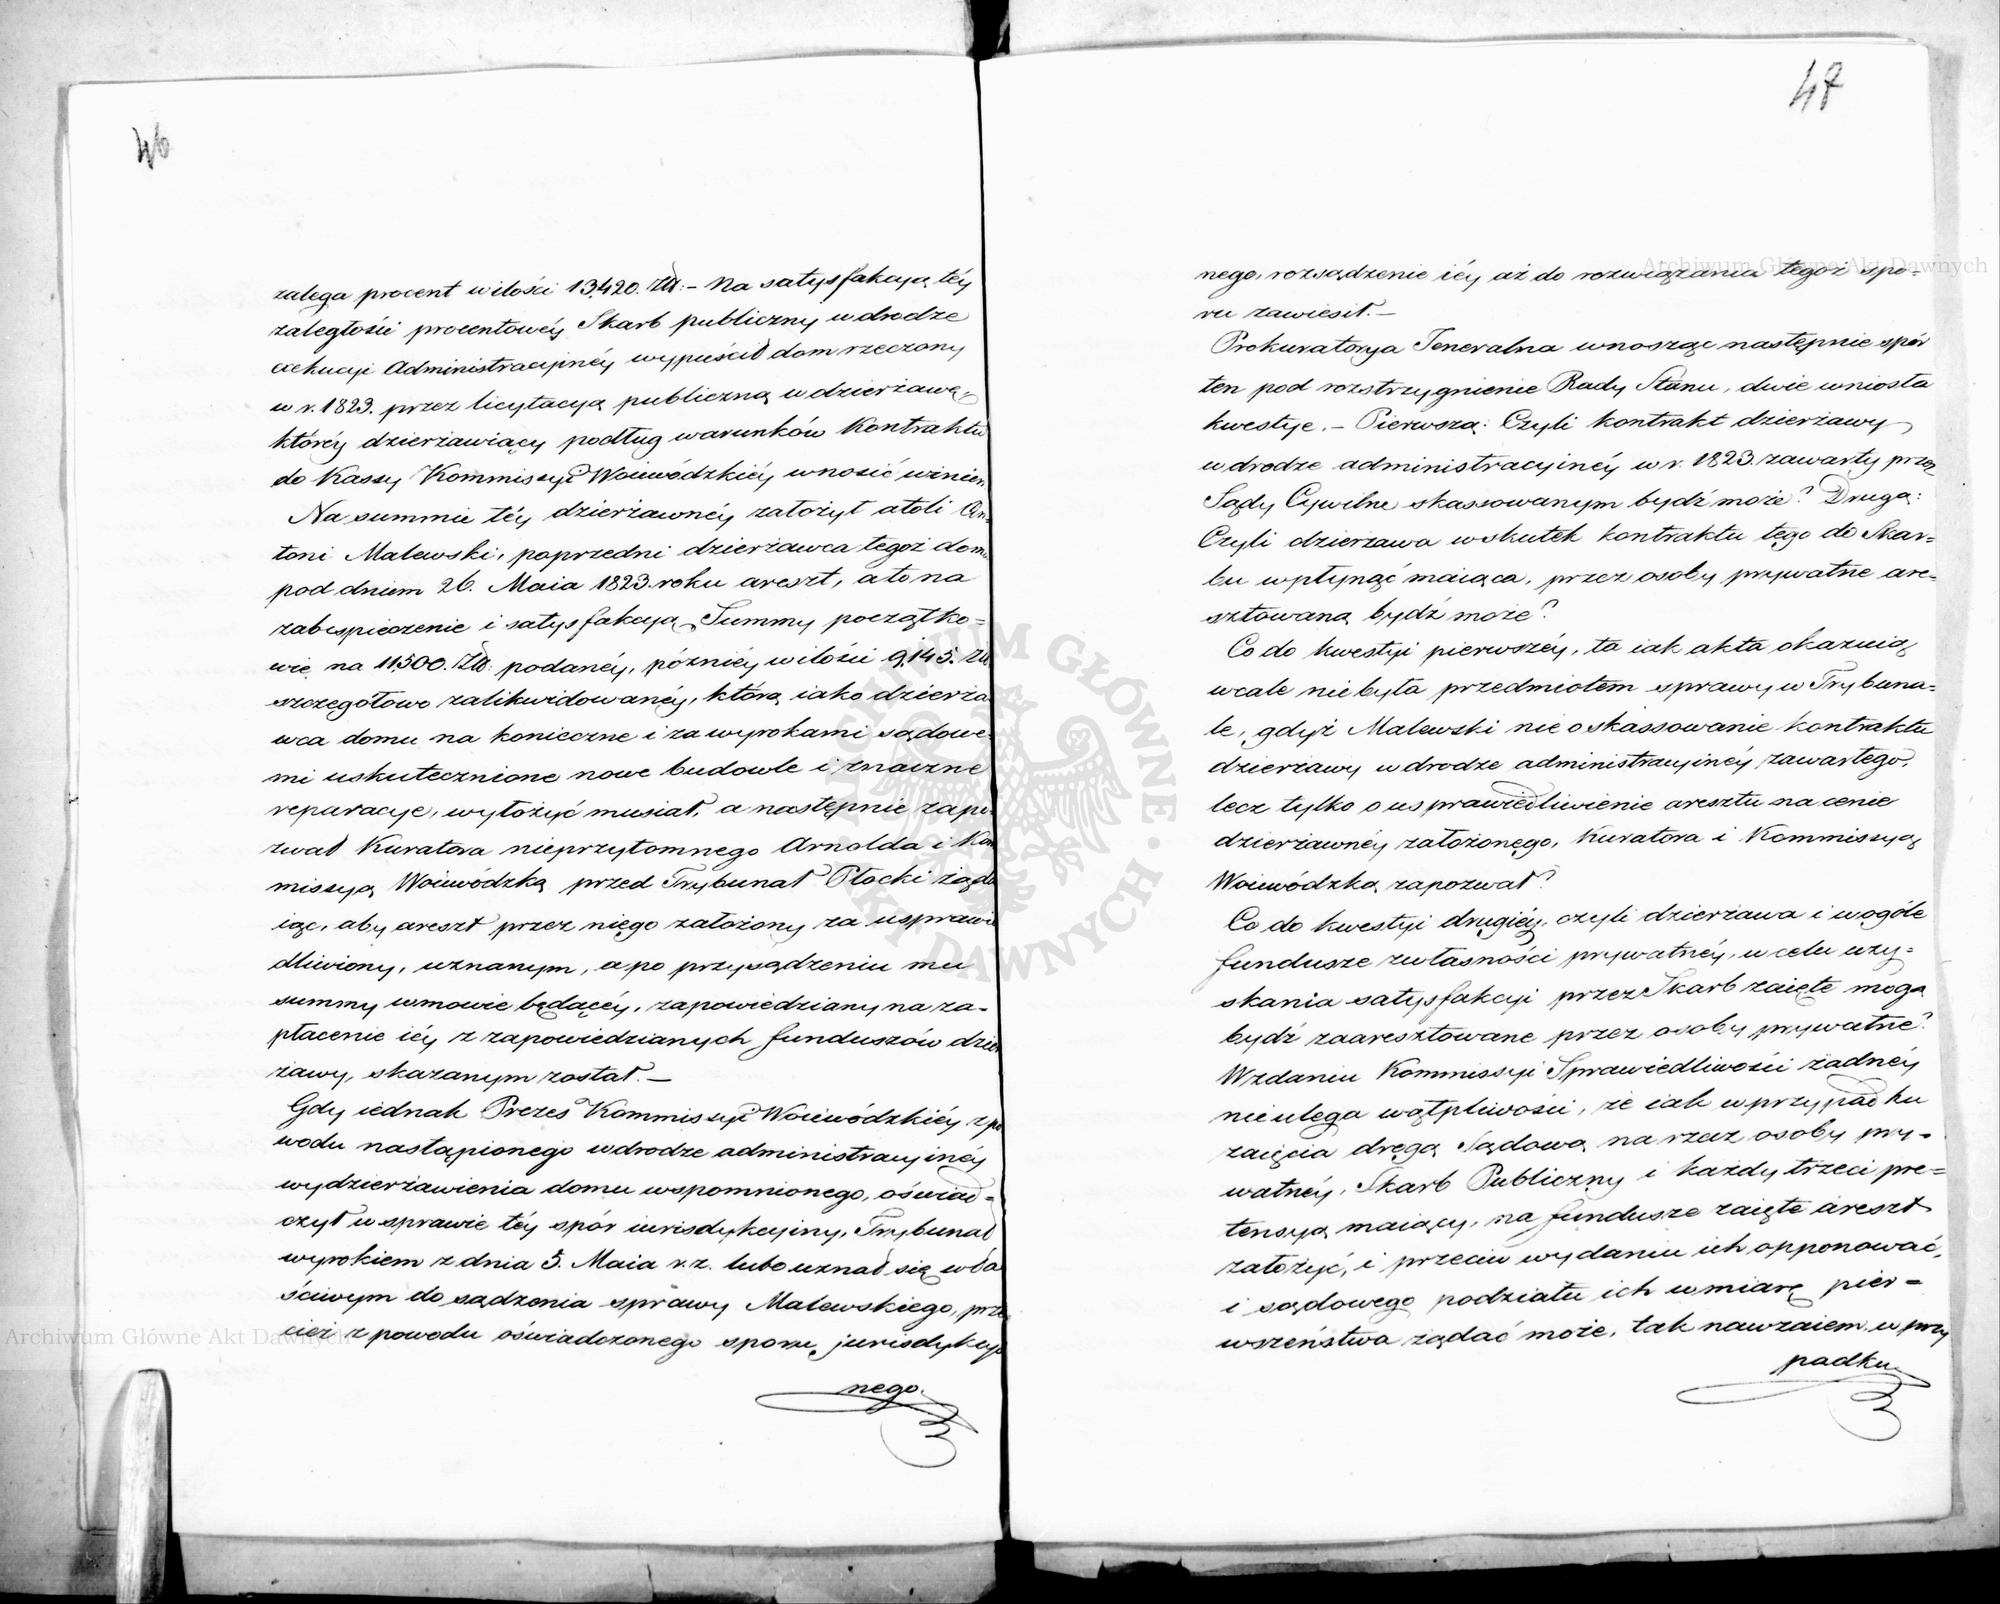 46
zalega procent w ilości 13,420. Złł: – Na satysfakcyą téy
zaległości procentowéy Skarb publiczny w drodze
exekucyi Administracyinéy wypuścił dom rzeczony
w r. 1823. przez licytacyą publiczną w dzierżawę,
któréy dzierżawiący podług warunków Kontraktu
do Kassy Kommissyi Woiewódzkiéy wnosić winien
Na summie téy dzierżawnéy założył atoli An-
toni Malewski, poprzedni dzierżawca tegoż domu
pod dniem 26. Maia 1823. roku areszt, a to na
zabespieczenie i satysfakcyą Summy początko-
wie na 11,500. Złł: podanéy, późniéy w ilości 9,145. Złł
szczegółowo zalikwidowanéy, którą iako dzierża
wca domu na konieczne i za wyrokami sądowe-
mi uskutecznione nowe budowle i znaczne
reparacye, wyłożyć musiał, a następnie zapo-
zwał Kuratora nieprzytomnego Arnolda i Kom
missyą Woiewódzką przed Trybunał Płocki żąda
iąc, aby areszt przez niego założony za usprawie
dliwiony, uznanym, a po przysądzeniu mu
summy w mowie będącéy, zapowiedziany na za-
płacenie iéy z zapowiedzianych funduszów dzier
żawy, skazanym został. –
Gdy iednak Prezes Kommissyi Woiewódzkiéy z po
wodu nastąpionego w drodze administracyinéy
wydzierżawienia domu wspomnionego, oświad-
czył w sprawie téy spór iurisdykcyiny, Trybunał
wyrokiem z dnia 5. Maia r. z. lubo uznał się wła
ściwym do sądzenia sprawy Malewskiego, prze
cież z powodu oświadczonego sporu jurisdykcyi
nego.
47
nego, rozsądzenie iéy aż do rozwiązania tegoż spo-
ru zawiesił. –
Prokuratorya Jeneralna wnosząc następnie spór
ten pod rozstrzygnienie Rady Stanu, dwie wniosła
kwestye. – Pierwszą: Czyli kontrakt dzierżawy
w drodze administracyinéy w r. 1823. zawarty przez
Sądy Cywilne skassowanym bydź może? Drugą:
Czyli dzierżawa w skutek kontraktu tego do Skar-
bu wpłynąć maiąca, przez osoby prywatne are-
sztowaną bydź może?
Co do kwestyi pierwszéy, ta iak akta okazuią
wcale nie była przedmiotem sprawy w Trybuna-
le, gdyż Malewski nie o skassowanie kontraktu
dzierżawy w drodze administracyinéy zawartego,
lecz tylko o usprawiedliwienie aresztu na cenie
dzierżawnéy założonego, Kuratora i Kommissyą
Woiewódzką zapozwał?
Co do kwestyi drugiéy, czyli dzierżawa i w ogóle
fundusze z własności prywatnéy, w celu uzy-
skania satysfakcyi przez Skarb zaięte mogą
bydź zaaresztowane przez osoby prywatne?
W zdaniu Kommissyi Sprawiedliwości żadnéy
nie ulega wątpliwości, że iak w przypadku
zaięcia drogą Sądową na rzecz osoby pry-
watnéy, Skarb Publiczny i każdy trzeci pre-
tensyą maiący, na fundusze zaięte areszt
założyć, i przeciw wydaniu ich opponować,
i sądowego podziału ich w miarę pier-
wszeństwa żądać może, tak nawzaiem w przy
padku
Archiwum Główne Akt Dawnych
Archiwum Główne Akt Dawnych
ARCHIWUM GŁÓWNE AKT DAWNYCH